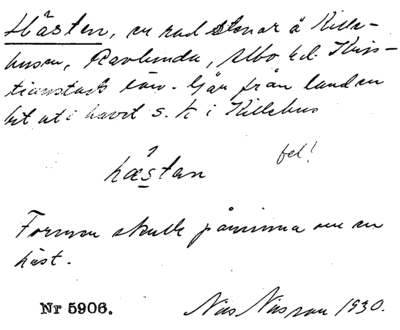 Hästen, en rad stenar å Kille-
husen, Ravlunda, Albo hd. Kris-
tianstads län. Går från land en
bit ut i havet s. k i Killehus
hästan fel!
Formen skulle påminna om en
häst.
Nr 5906. Nils Nilsson 1930.